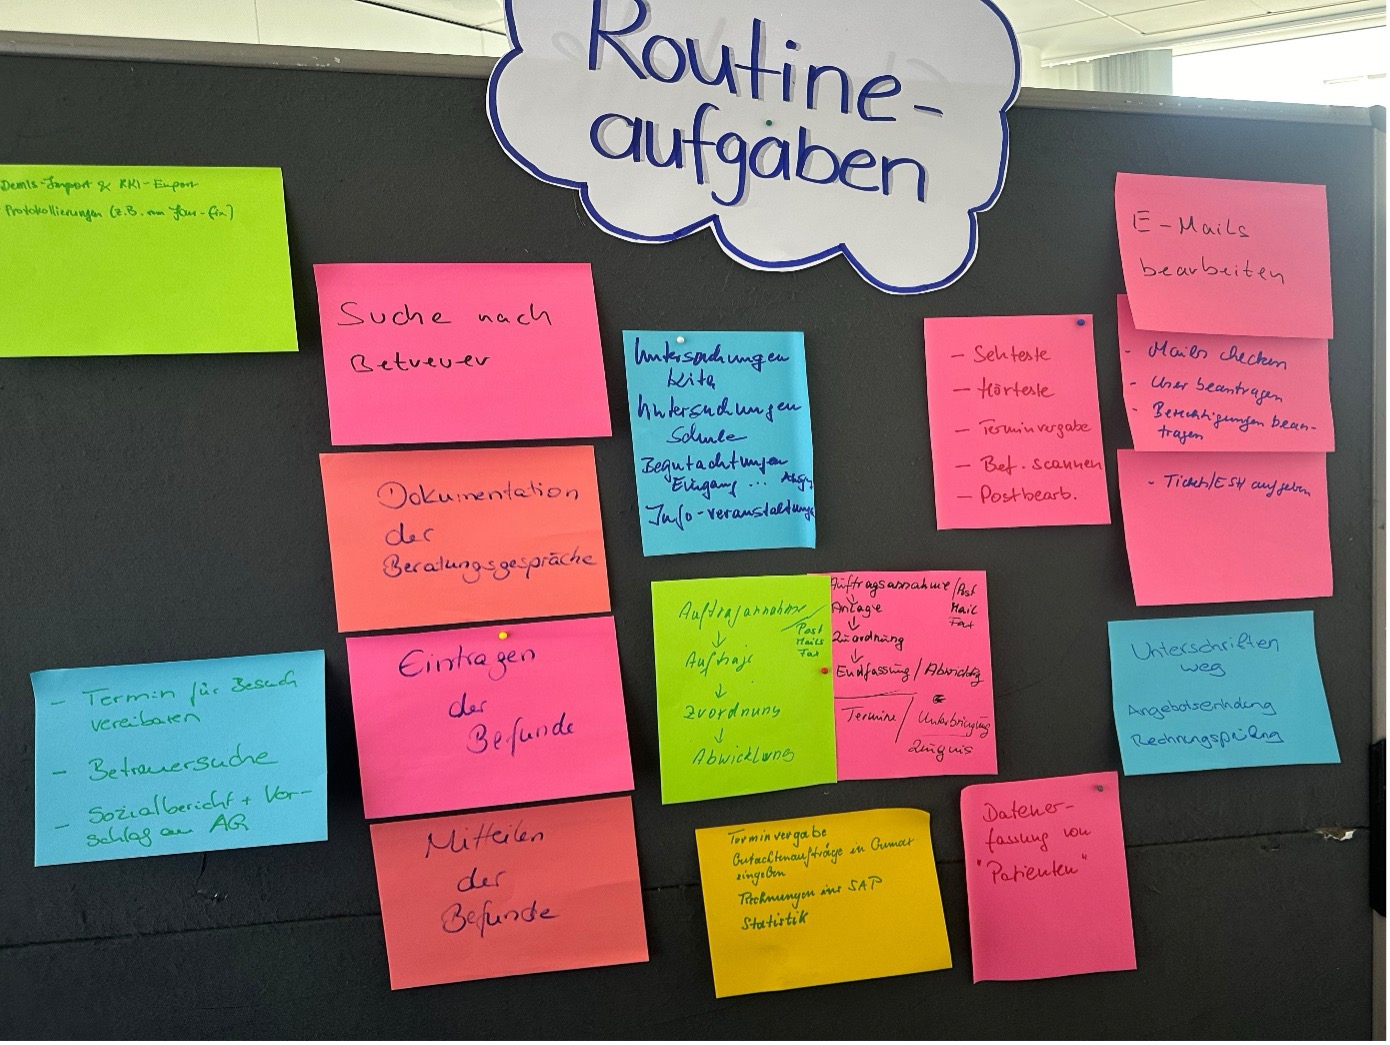 Routine-
aufgaben
Demis-Import & RKI-Export
Protokollierungen (z.B. vom Jour-fix)
Suche nach
Betreuer
Dokumentation
der
Beratungsgespräche
Eintragen
der
Befunde
Mitteilen
der
Befunde
- Termin für Besuch
vereibaren
- Betreuersuche
- Sozialbericht + Vor-
schlag an AG
Untersuchungen
Kita
Untersuchungen
Schule
Begutachtungen
Eingang ...
Info-veranstaltung
Auftragannahme
Post
Mails
Fax
↓
↓
Zuordnung
↓
Abwicklung
Auftragsannahme / Post
Mail
Fax
↓
Anlage
↓
Zuordnung
↓
Endfassung /
Termine / Unterbringung
Zeugnis
Terminvergabe
Gutachtenaufträge in
eingeben
Rechnungen ins SAP
Statistik
- Sehteste
- Hörteste
- Terminvergabe
- Bef. scannen
- Postbearb.
Datener-
fassung von
"Patienten"
E-Mails
bearbeiten
- Mails checken
- User beantragen
- Berechtigungen bean-
tragen
- Ticket/ESH aufgeben
Unterschriften
weg
Angebotseinholung
Rechnungsprüfung